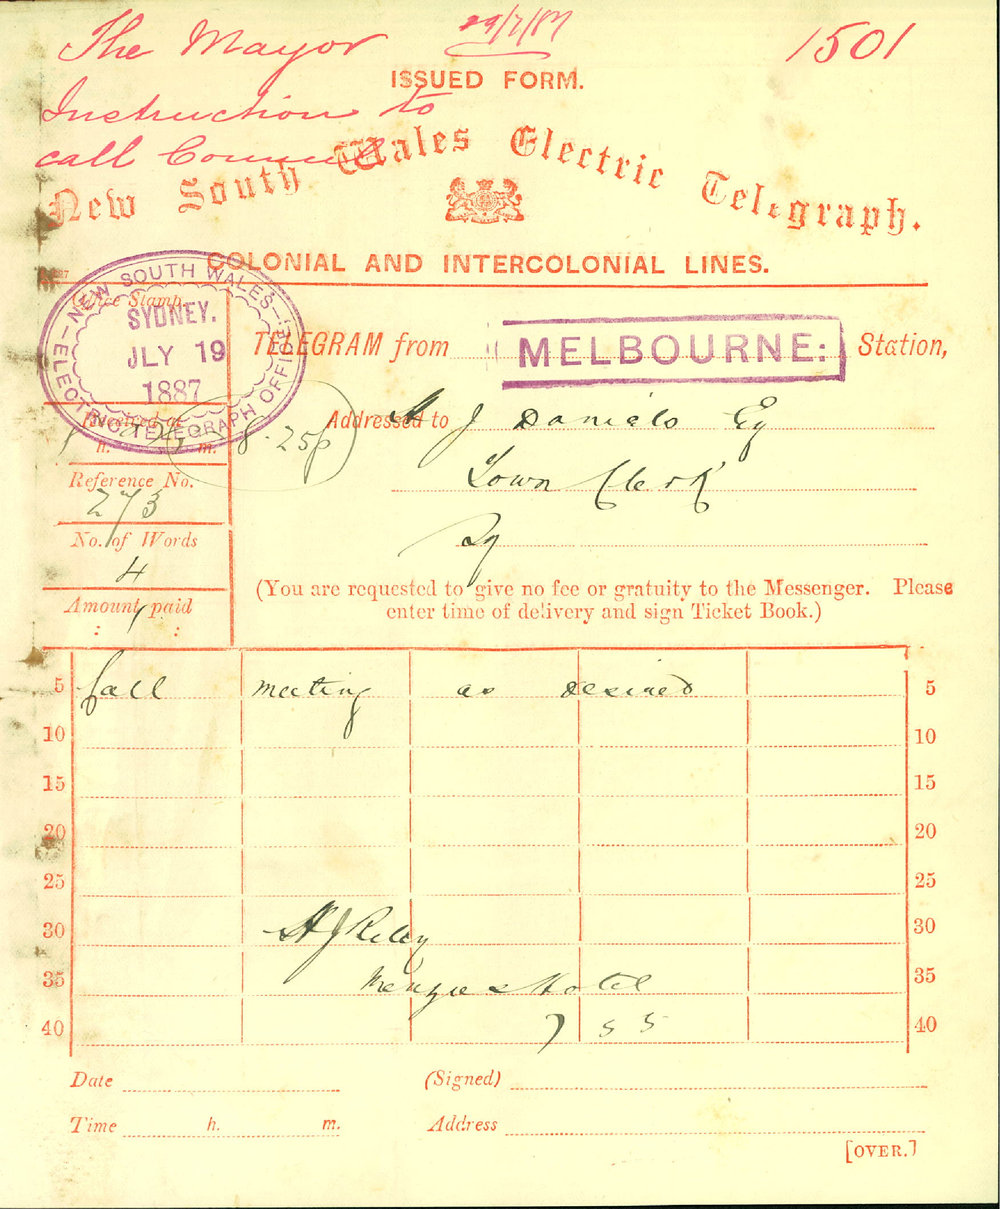 The Mayor 29/7/87 1501
ISSUED FORM.
Instruction to
call Council
New South Wales Electric Telegraph.
COLONIAL AND INTERCOLONIAL LINES.
Office Stamp.
NEW SOUTH WALES
SYDNEY.
JLY 19
1887
ELECTRIC TELEGRAPH OFFICE
TELEGRAM from MELBOURNE: Station,
Received at
h. m. 8.25p
Addressed to H J Daniels Eq
Town Clerk
Sy
Reference No.
273
No. of Words
4
Amount paid
: 1/ :
(You are requested to give no fee or gratuity to the Messenger. Please
enter time of delivery and sign Ticket Book.)
5 Call meeting as desired 5
10 10
15 15
20 20
25 25
30 A J Riley 30
35 Menzies Hotel 35
40 7 55 40
Date (Signed)
Time h. m. Address
[OVER.]